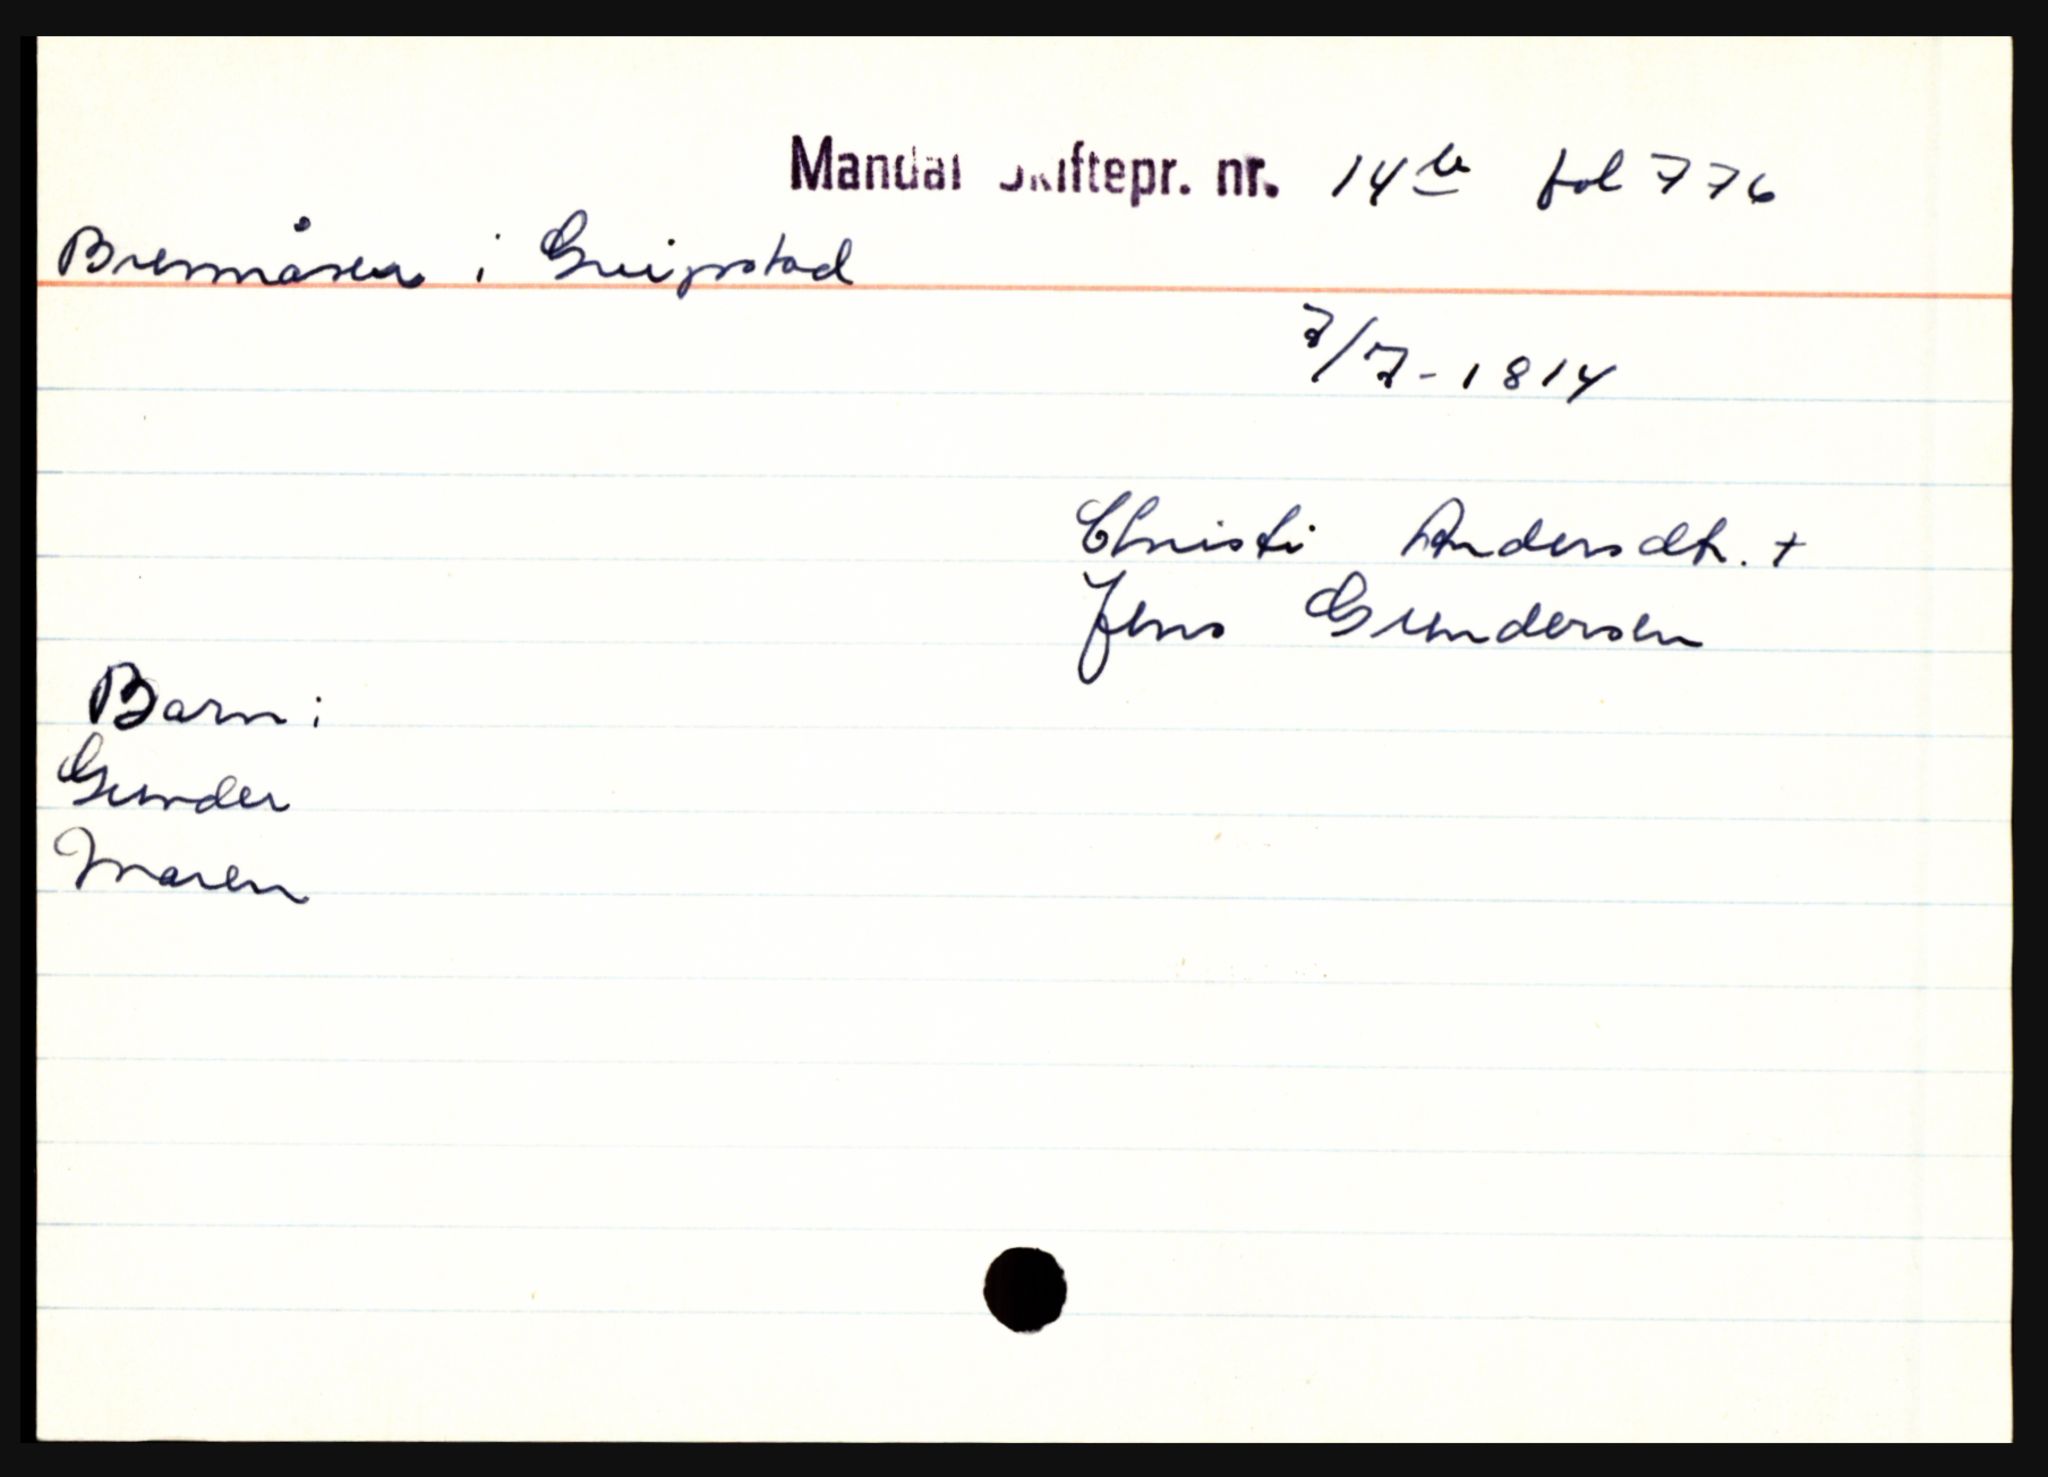 Mandal Skiftepr. nr. 14b fol 776
Brennåsen i Greipstad
7/7-1814
Christi Andersdtr. +
Jens Gundersen
Barn:
Gunder
Maren